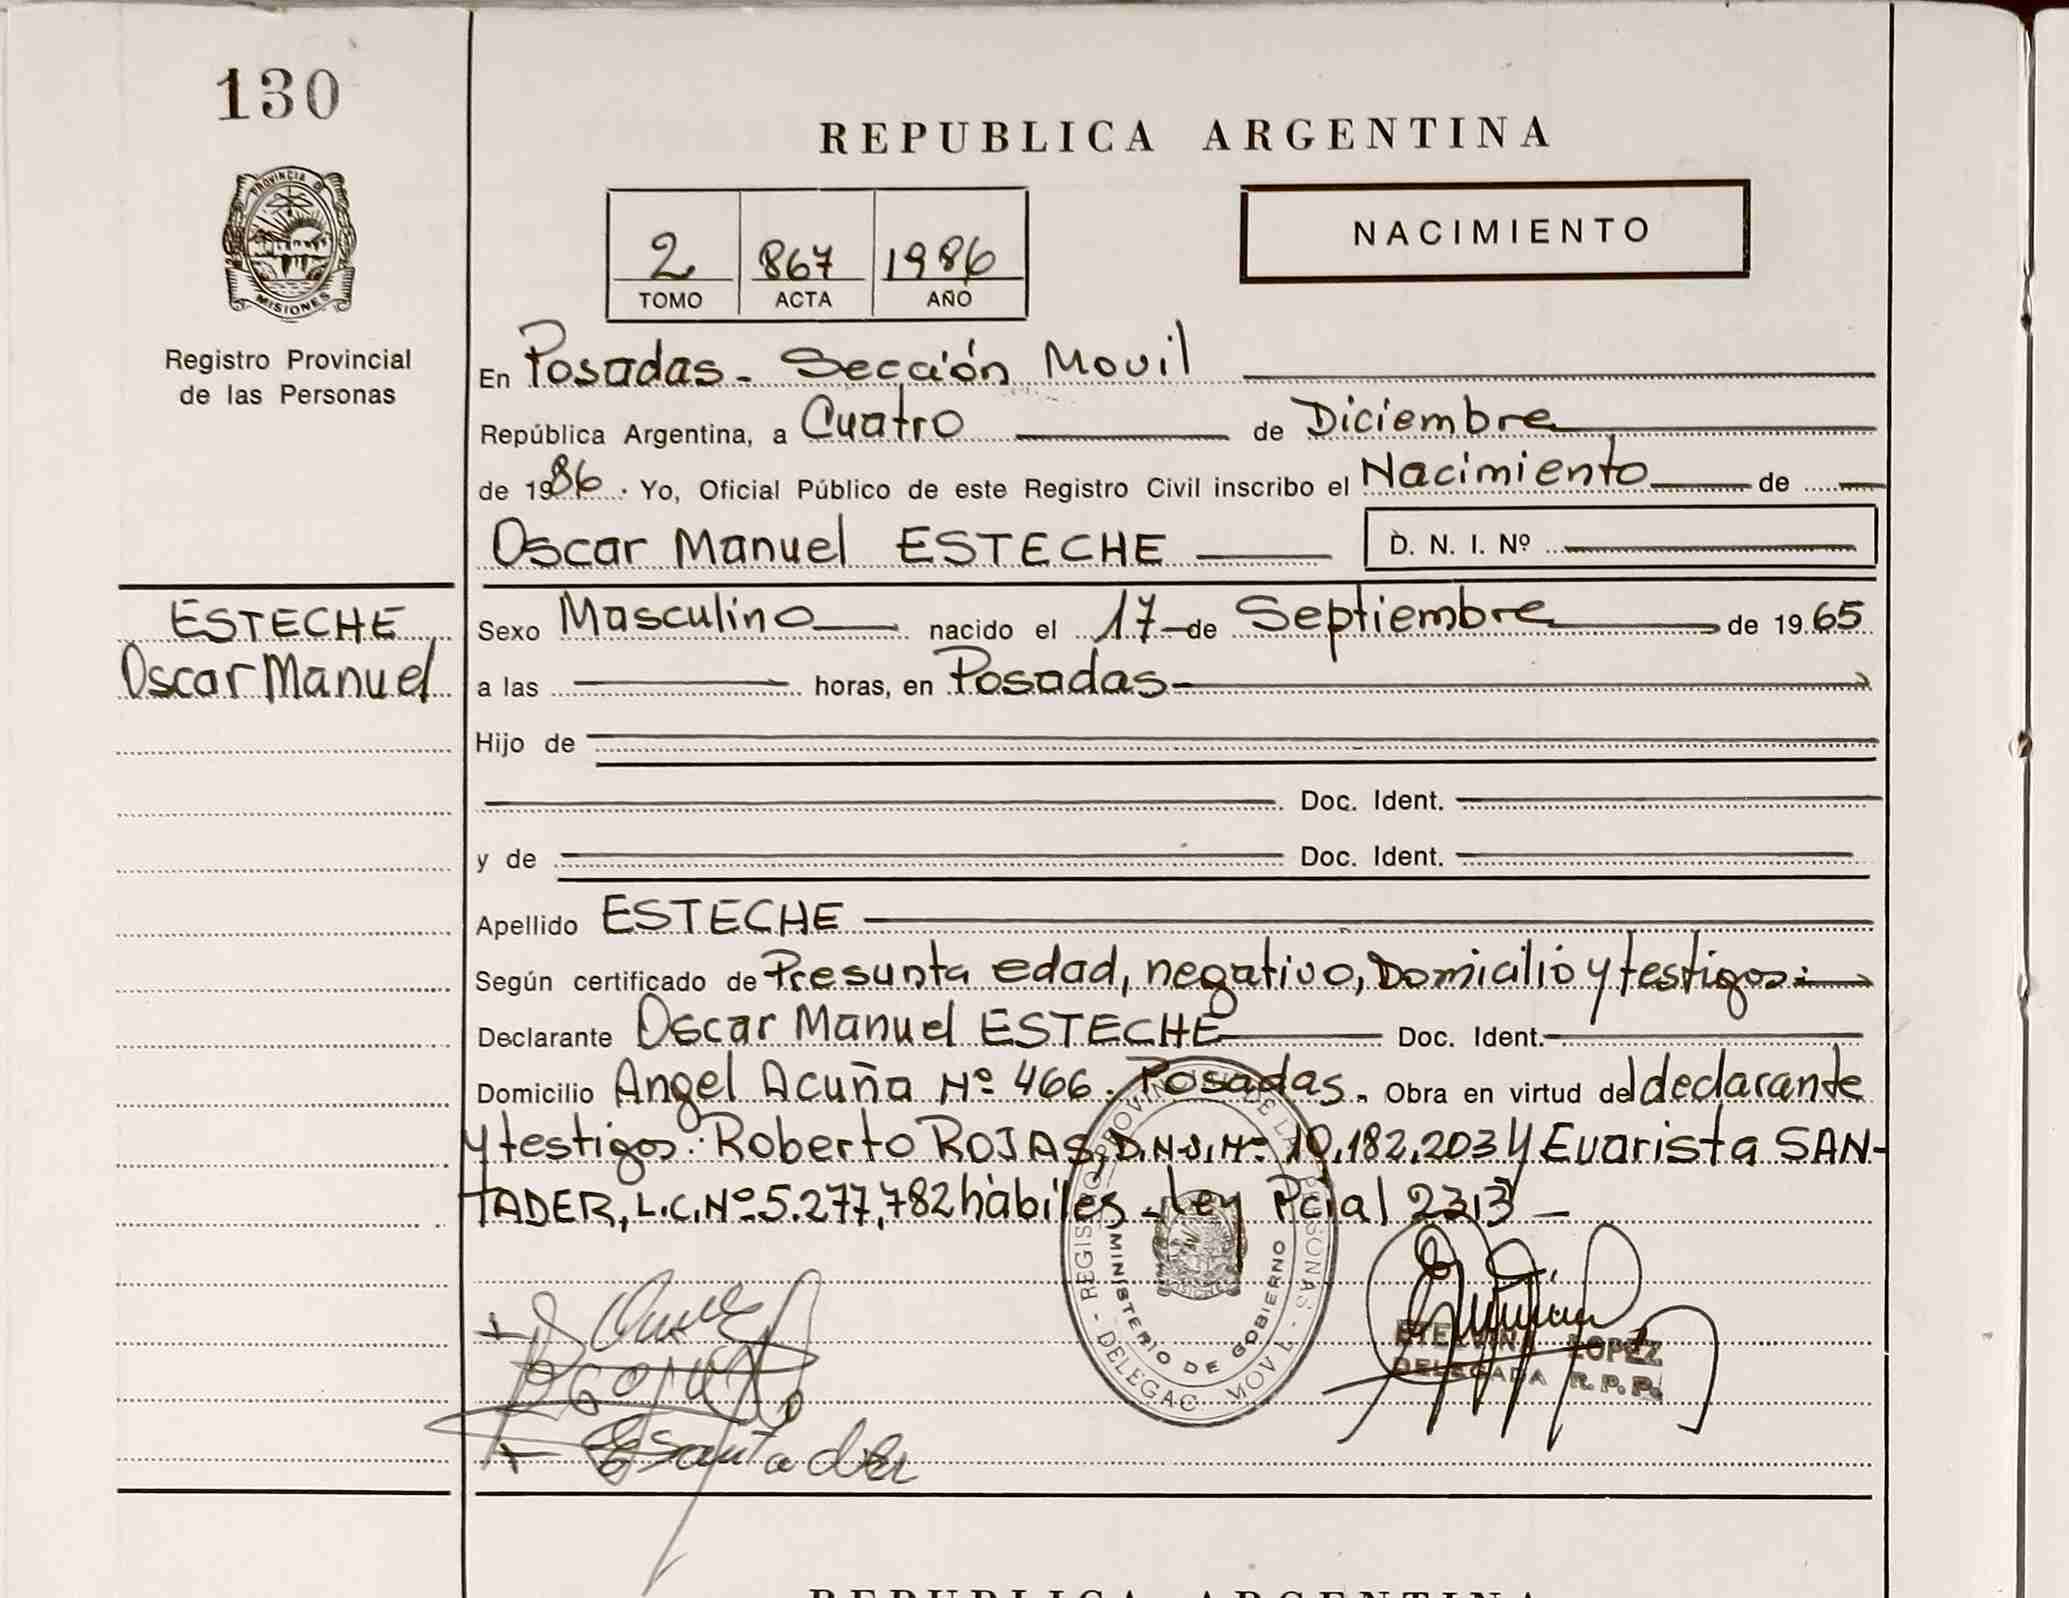 130
PROVINCIA DE
MISIONES
Registro Provincial
de las Personas
ESTECHE
Oscar Manuel
REPUBLICA ARGENTINA
2 867 1986
TOMO ACTA AÑO
NACIMIENTO
En Posadas - Sección Movil
República Argentina, a Cuatro de Diciembre
de 1986. Yo, Oficial Público de este Registro Civil inscribo el Nacimiento de
Oscar Manuel ESTECHE D. N. I. Nº
Sexo Masculino nacido el 17 de Septiembre de 1965
a las horas, en Posadas
Hijo de
Doc. Ident.
y de Doc. Ident.
Apellido ESTECHE
Según certificado de Presunta edad, negativo, Domicilio y testigos:
Declarante Oscar Manuel ESTECHE Doc. Ident.
Domicilio Angel Acuña Nº 466. Posadas. Obra en virtud del declarante
y testigos: Roberto ROJAS, D.N.I. Nº 10.182.203 y Evarista SAN-
TADER, L.C. Nº 5.277.782 hábiles - ley Pcial 2313 -
REGISTRO PROVINCIAL DE LAS PERSONAS
MINISTERIO DE GOBIERNO
DELEGAC. MOVIL
ETELVINA LOPEZ
DELEGADA R. P. P.
E Santader
REPUBLICA ARGENTINA